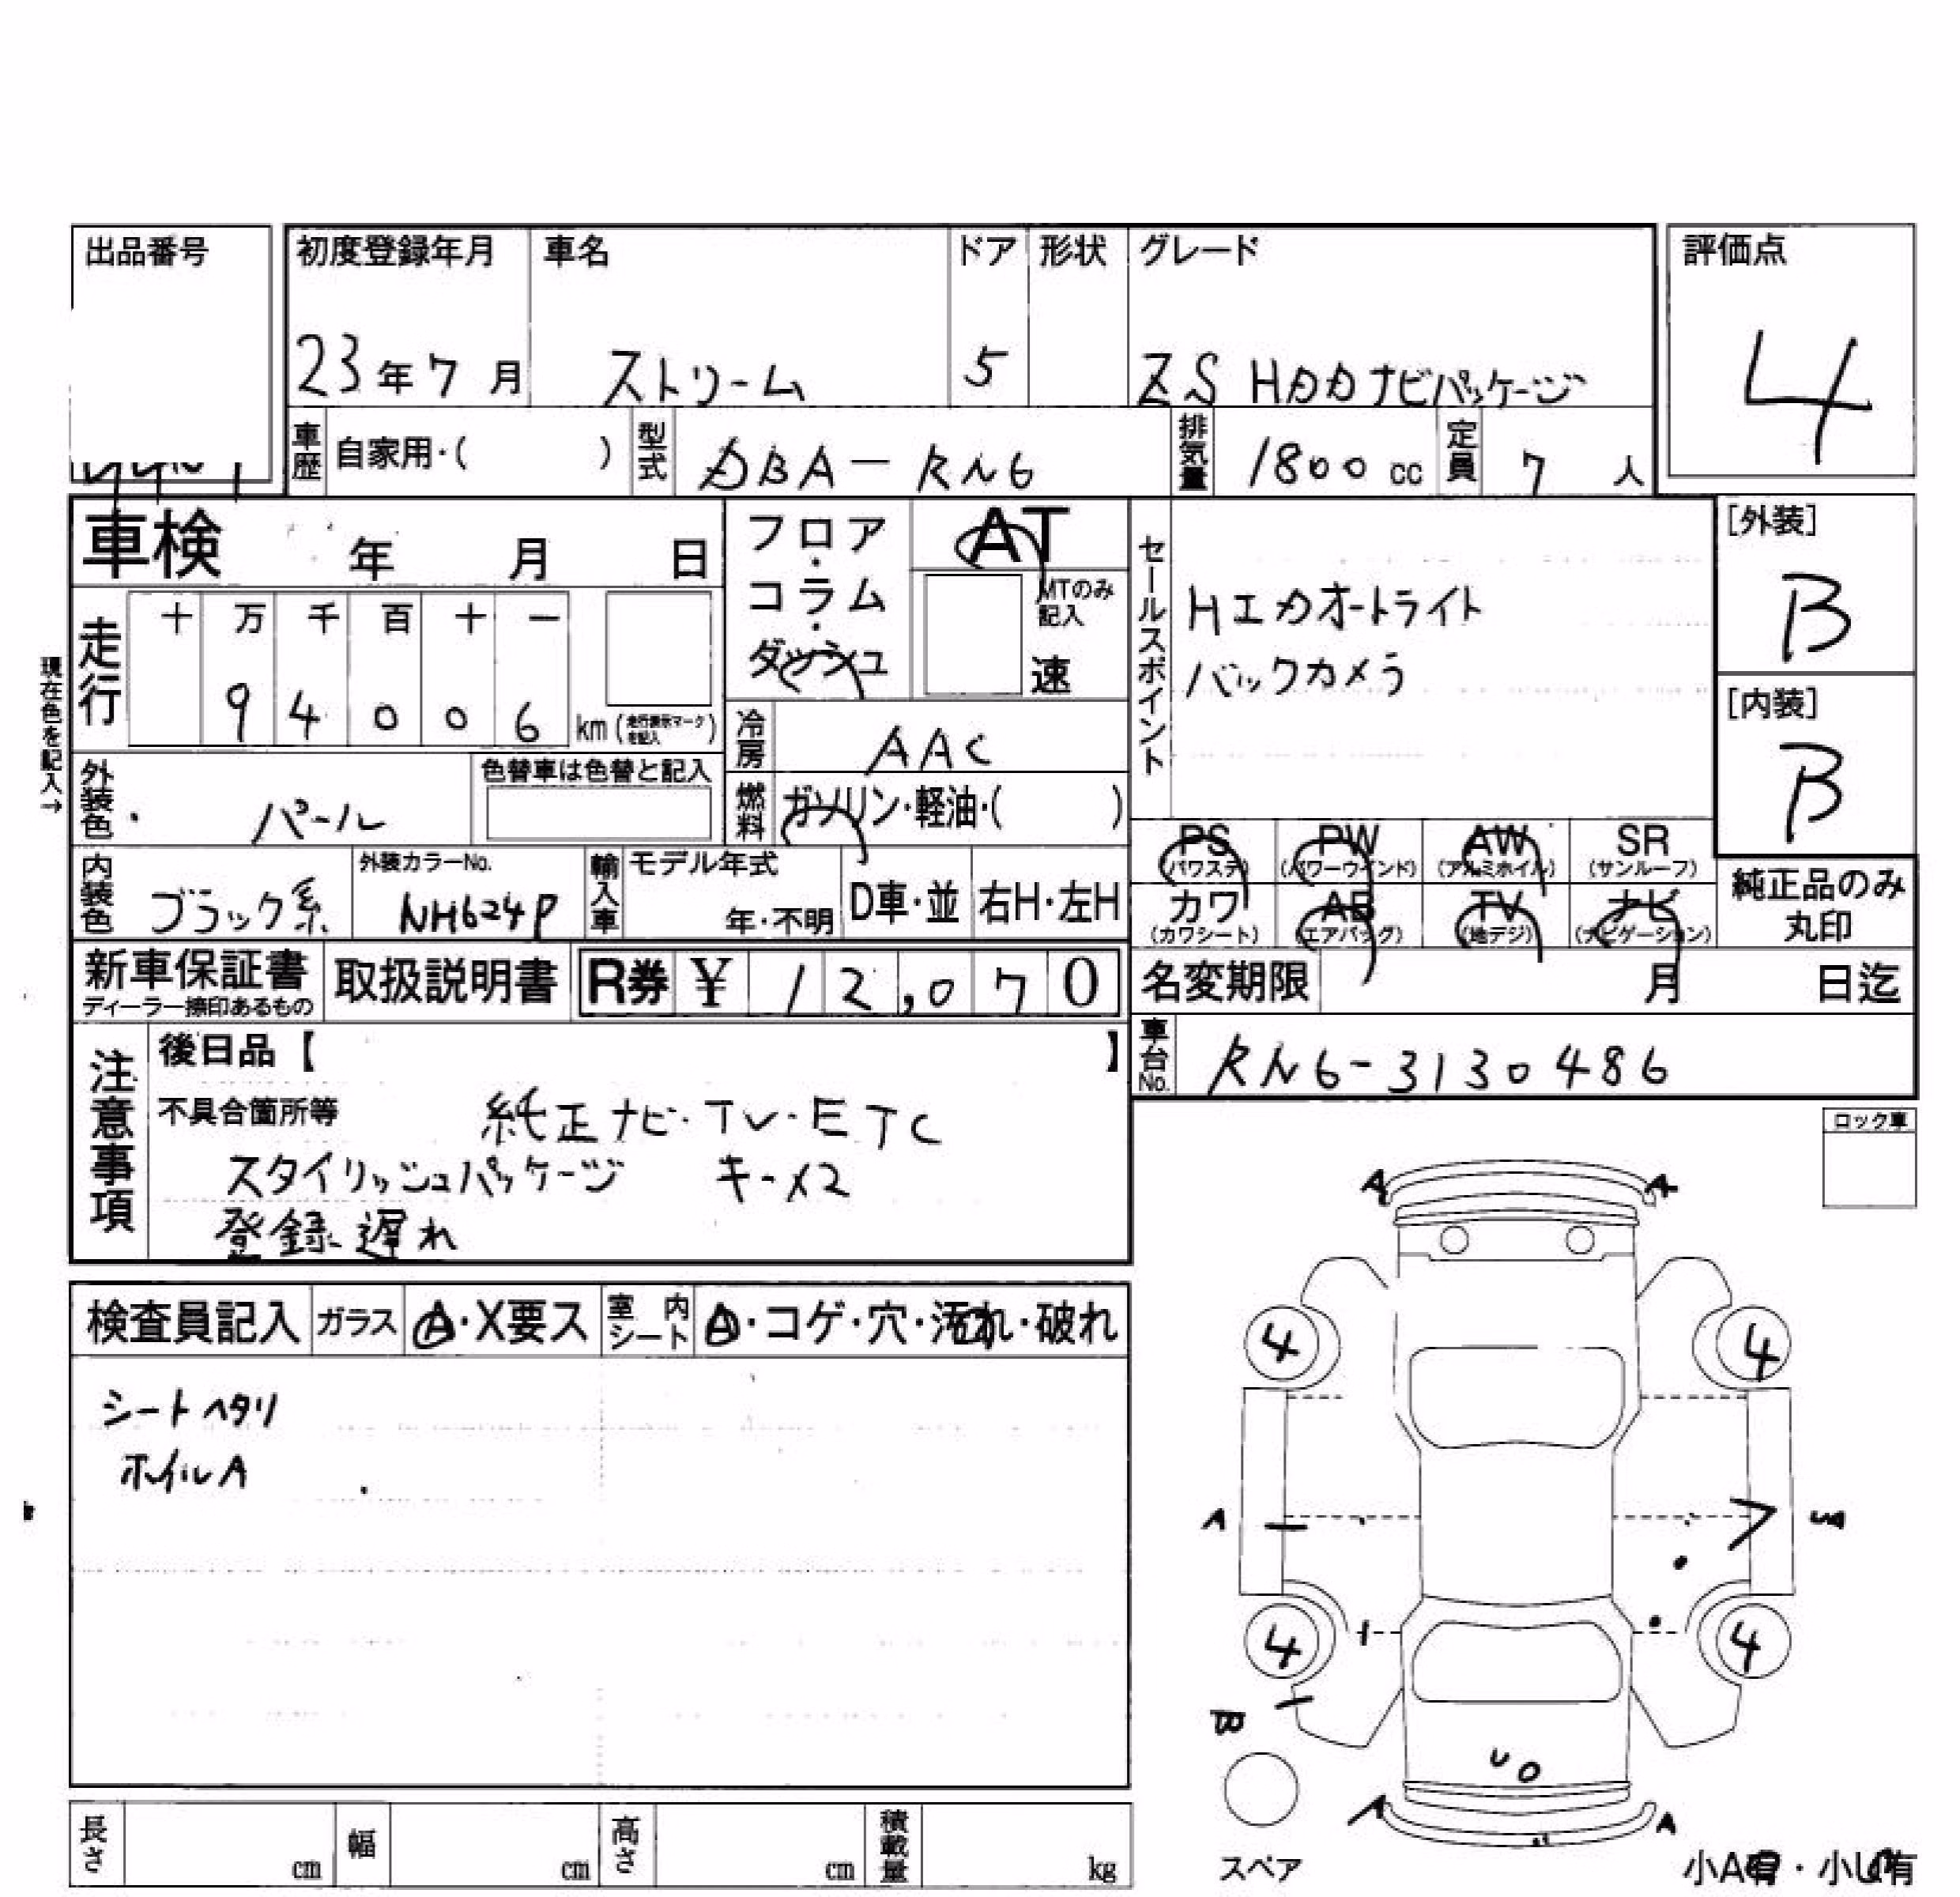 出品番号
初度登録年月 車名 ドア 形状 グレード 評価点
23年7月 ストリーム 5 ZS HDDナビパッケージ 4
車歴 自家用・( ) 型式 DBA-RN6 排気量 1800cc 定員 7人
車検 年 月 日
フロア・コラム・ダッシュ AT
MTのみ記入
速
セールスポイント
HIDオートライト
バックカメラ
[外装]
B
[内装]
B
現在色を記入→
走行 十 万 千 百 十 一
9 4 0 0 6 km (走行表示マークを記入)
冷房 AAC
外装色 パール 色替車は色替と記入
燃料 ガソリン・軽油・( )
PS (パワステ) PW (パワーウインド) AW (アルミホイル) SR (サンルーフ)
カワ (カワシート) AB (エアバッグ) TV (地デジ) ナビ (ナビゲーション)
純正品のみ
丸印
内装色 ブラック系 外装カラーNo. NH624P 輸入車 モデル年式 年・不明 D車・並 右H・左H
新車保証書 ディーラー捺印あるもの 取扱説明書 R券 ¥ 12,070
名変期限 月 日迄
車台No. RN6-3130486
注意事項
後日品【 】
不具合箇所等 純正ナビ・TV・ETC
スタイリッシュパッケージ キー×2
登録遅れ
ロック車
検査員記入 ガラス A・X要ス 室内シート A・コゲ・穴・汚れ・破れ
シートヘタリ
ホイルA
A A
4 4
A
4 4
B
U
A A
スペア
小A有・小U有
長さ cm 幅 cm 高さ cm 積載量 kg